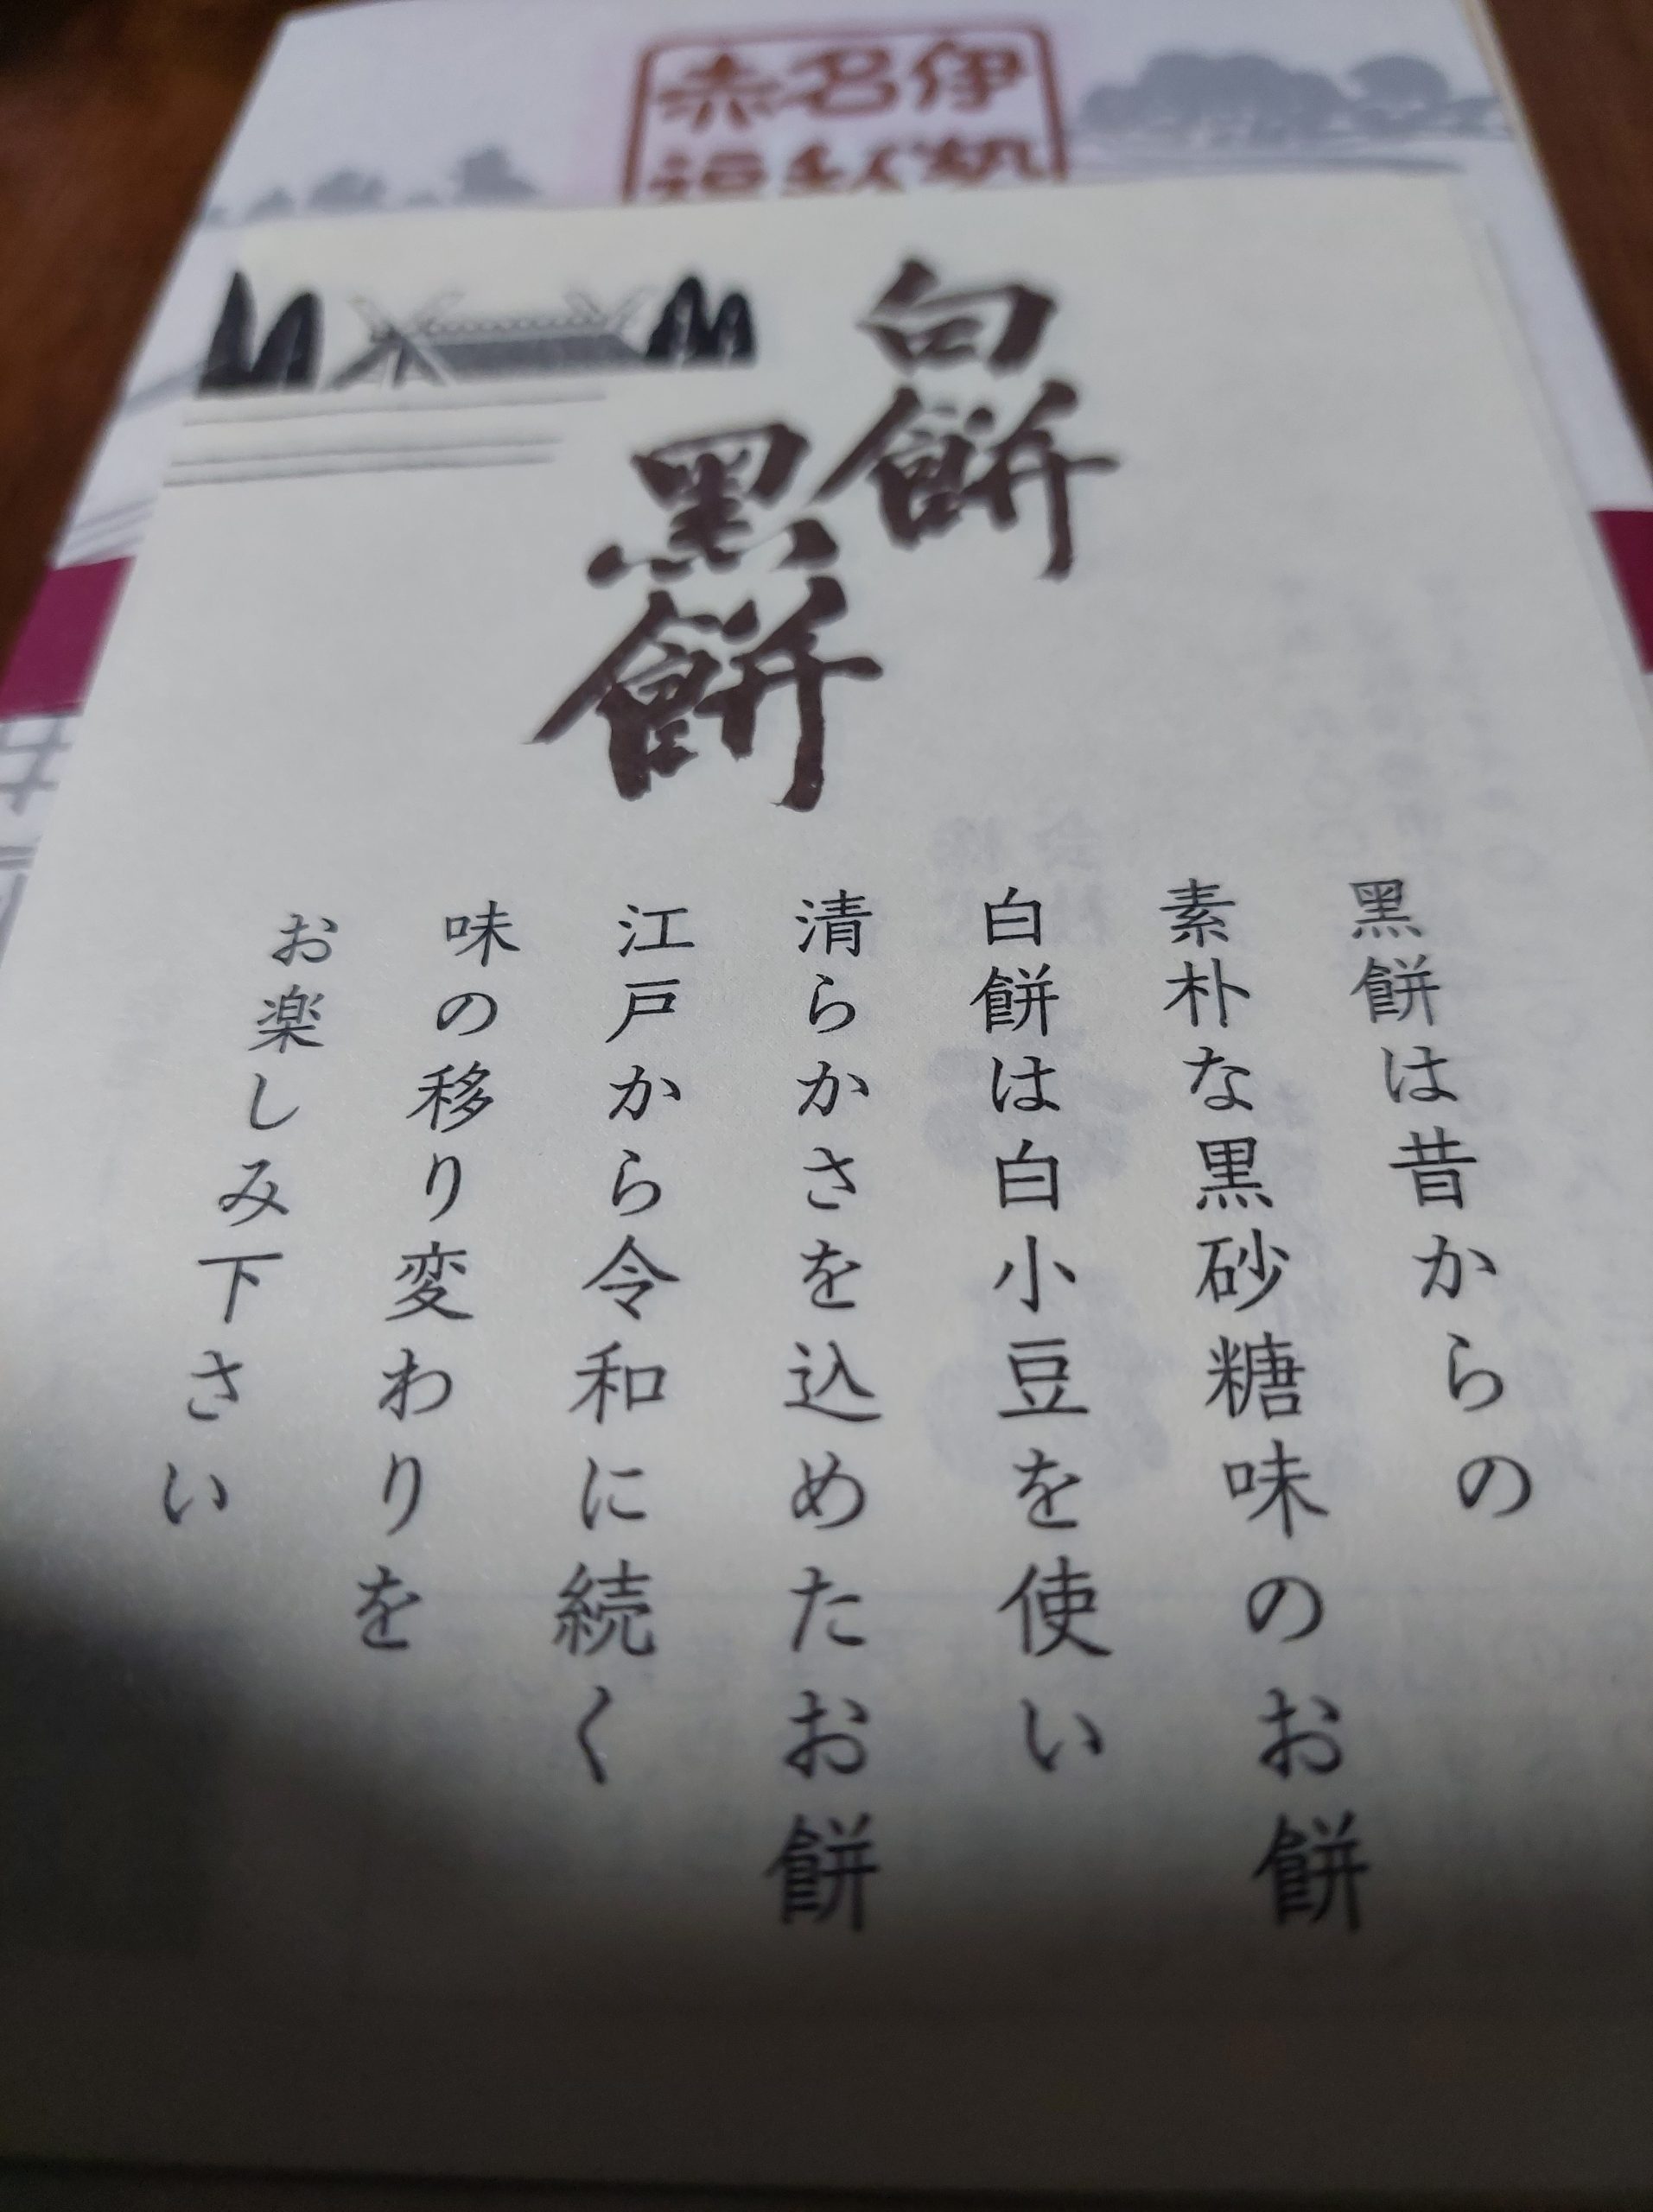 伊
名
赤
白餅
黑餅
黑餅は昔からの
素朴な黒砂糖味のお餅
白餅は白小豆を使い
清らかさを込めたお餅
江戸から令和に続く
味の移り変わりを
お楽しみ下さい